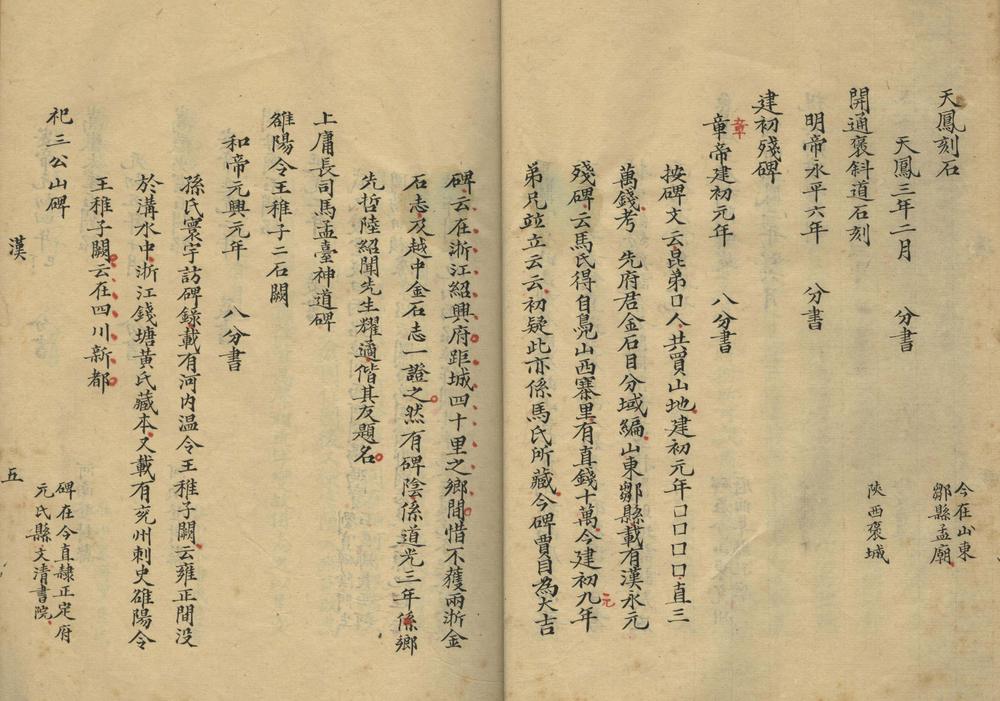 天鳳刻石
天鳳三年二月　分書　今在山東鄒縣孟廟
開通褒斜道石刻
明帝永平六年　分書　陝西褒城
建初殘碑
章帝建初元年　八分書
章
按碑文云昆弟口人共買山地建初元年口口口口直三
萬錢考　先府君金石目分域編山東鄒縣載有漢永元
殘碑云馬氏得自鳧山西寨里有直錢十萬今建初九年
元
弟兄竝立云云初疑此亦係馬氏所藏今碑賈自為大吉
碑云在浙江紹興府距城四十里之鄉間惜不獲兩浙金
石志及越中金石志一證之然有碑陰係道光三年係鄉
先哲陸紹聞先生耀遹偕其友題名
上庸長司馬孟臺神道碑
雒陽令王稚子二石闕
和帝元興元年　八分書
孫氏寰宇訪碑錄載有河内温令王稚子闕云雍正間没
於溝水中浙江錢塘黃氏藏本又載有兗州刺史雒陽令
王稚子闕云在四川新都
祀三公山碑　碑在今直隷正定府元氏縣文清書院
漢　五